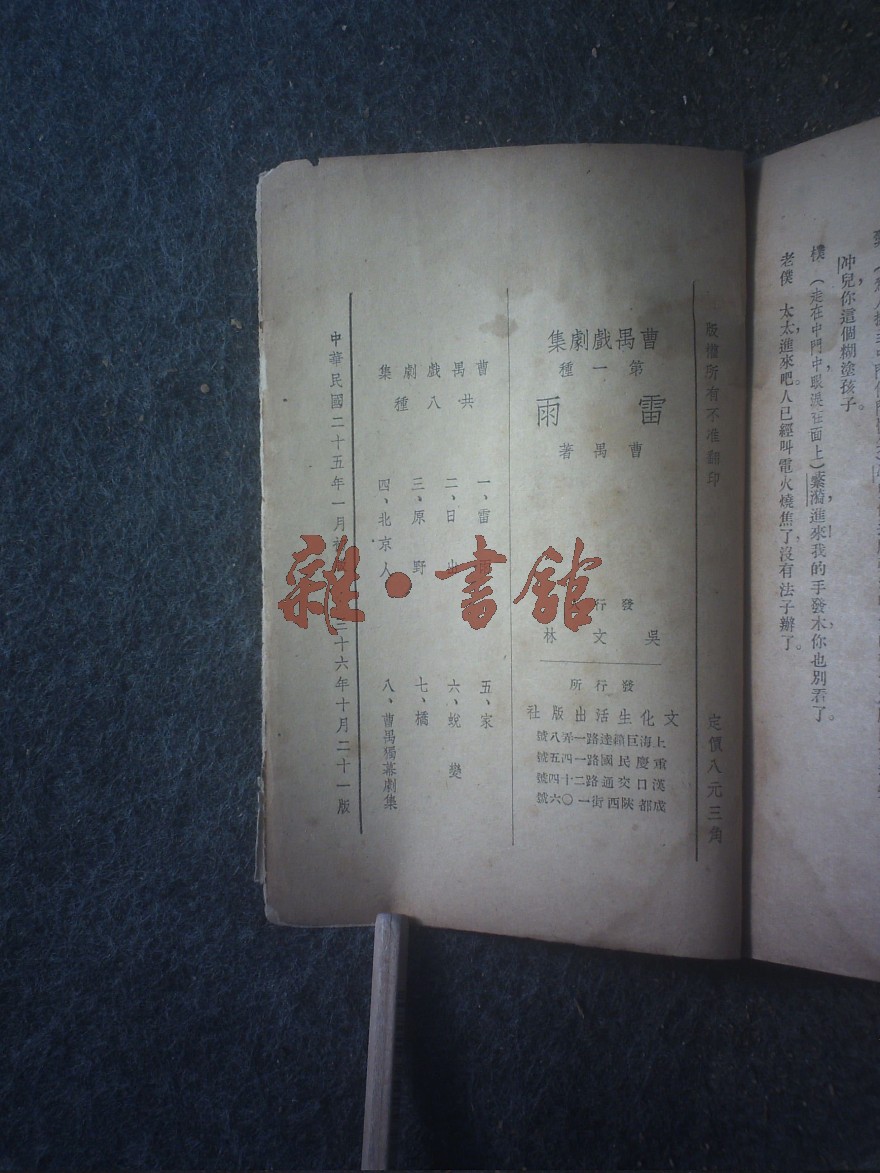 冲兒你這個糊塗孩子。
樸 (走在中門中眼淚在面上)蘩漪進來我的手發木你也別看了。
老僕 太太進來吧人已經叫電火燒焦了沒有法子辦了。
版權所有不准翻印
定價八元三角
曹禺戲劇集
第一種
雷雨
曹禺著
發行
吳文林
發行所
文化生活出版社
上海巨籟達路一弄八號
重慶民國路一四五號
漢口交通路二十四號
成都陝西街一〇六號
曹禺戲劇集
共八種
一、雷
二、日
三、原野
四、北京人
五、家
六、蛻變
七、橋
八、曹禺獨幕劇集
中華民國二十五年一月初
三十六年十月二十一版
雜·書館